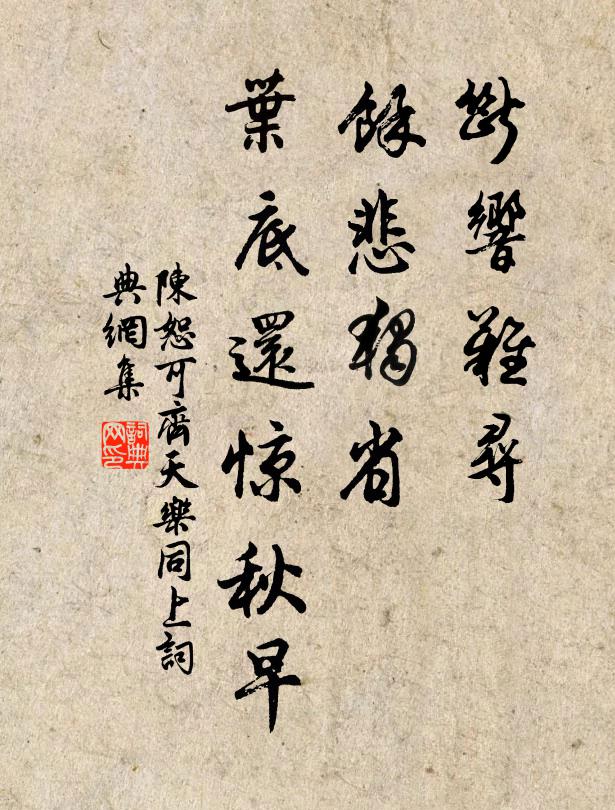 斷響難尋
餘悲獨省
葉底還惊秋早
陳恕可齊天樂同上詞
典網集
詞典網印